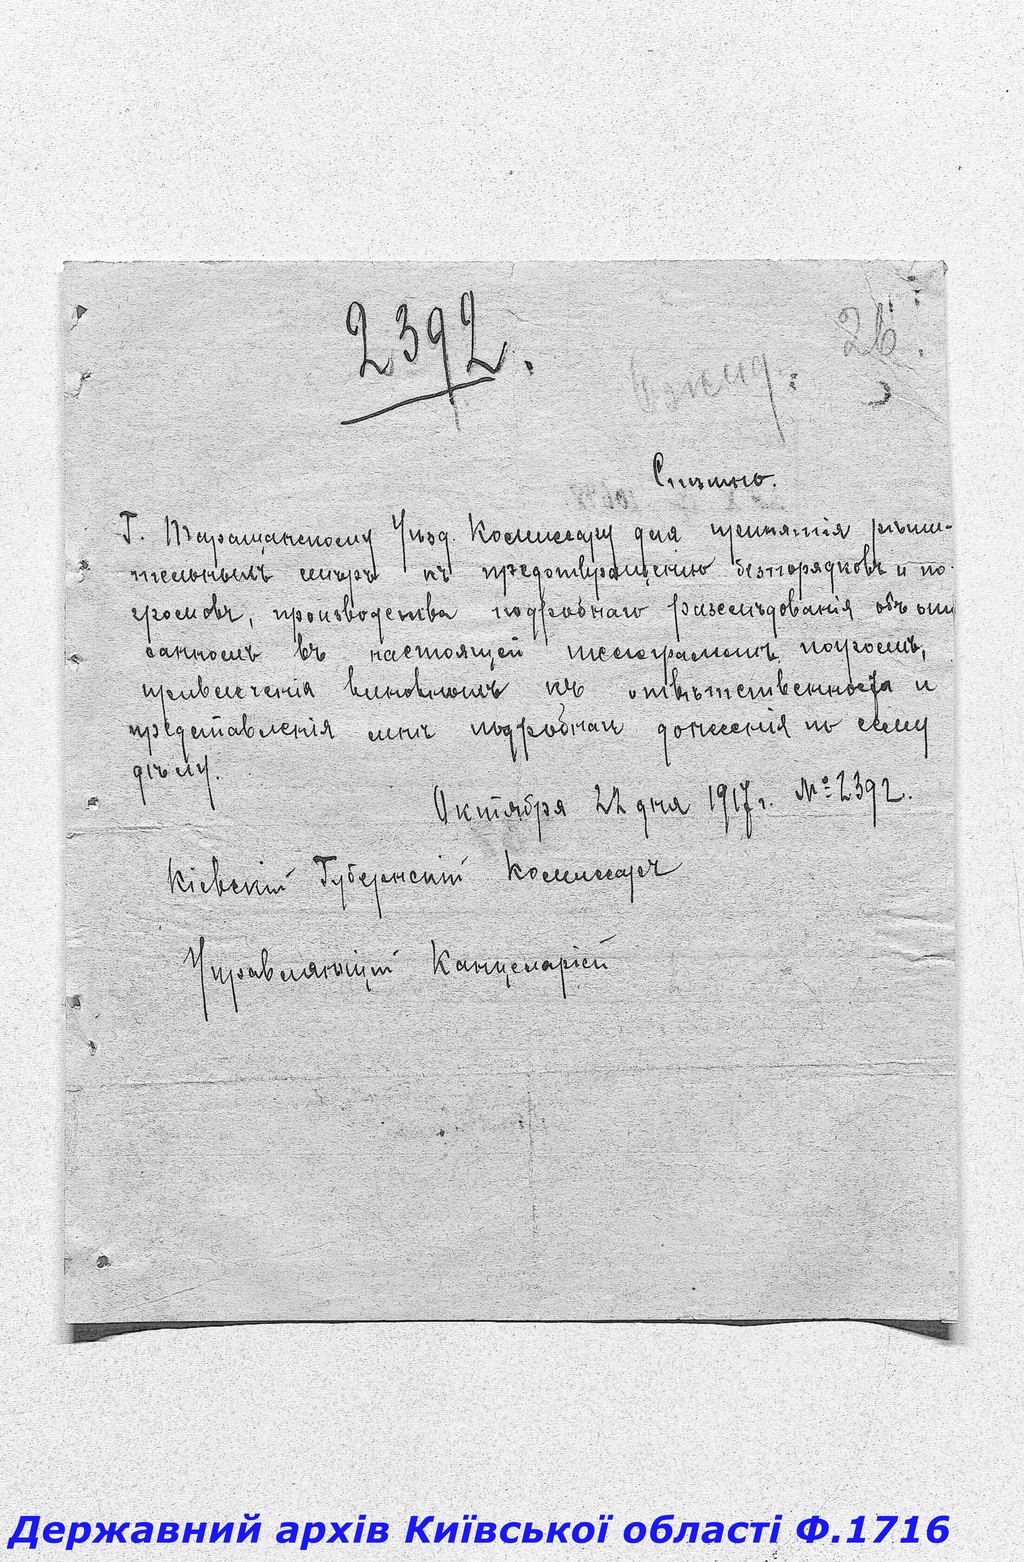 2392.
26.
Спѣшно.
Г. Таращанскому Уѣзд. Комиссару для принятія рѣши-
тельныхъ мѣръ къ предотвращенію безпорядковъ и по-
громовъ, производства подробнаго разслѣдованія объ опи
санномъ въ настоящей телеграммѣ погромѣ,
привлеченія виновныхъ къ отвѣтственности и
представленія мнѣ подробнаго донесенія по сему
дѣлу.
Октября 22 дня 1917 г. № 2392.
Кіевскій Губернскій Комиссаръ
Управляющій Канцеляріей
Державний архів Київської області Ф.1716